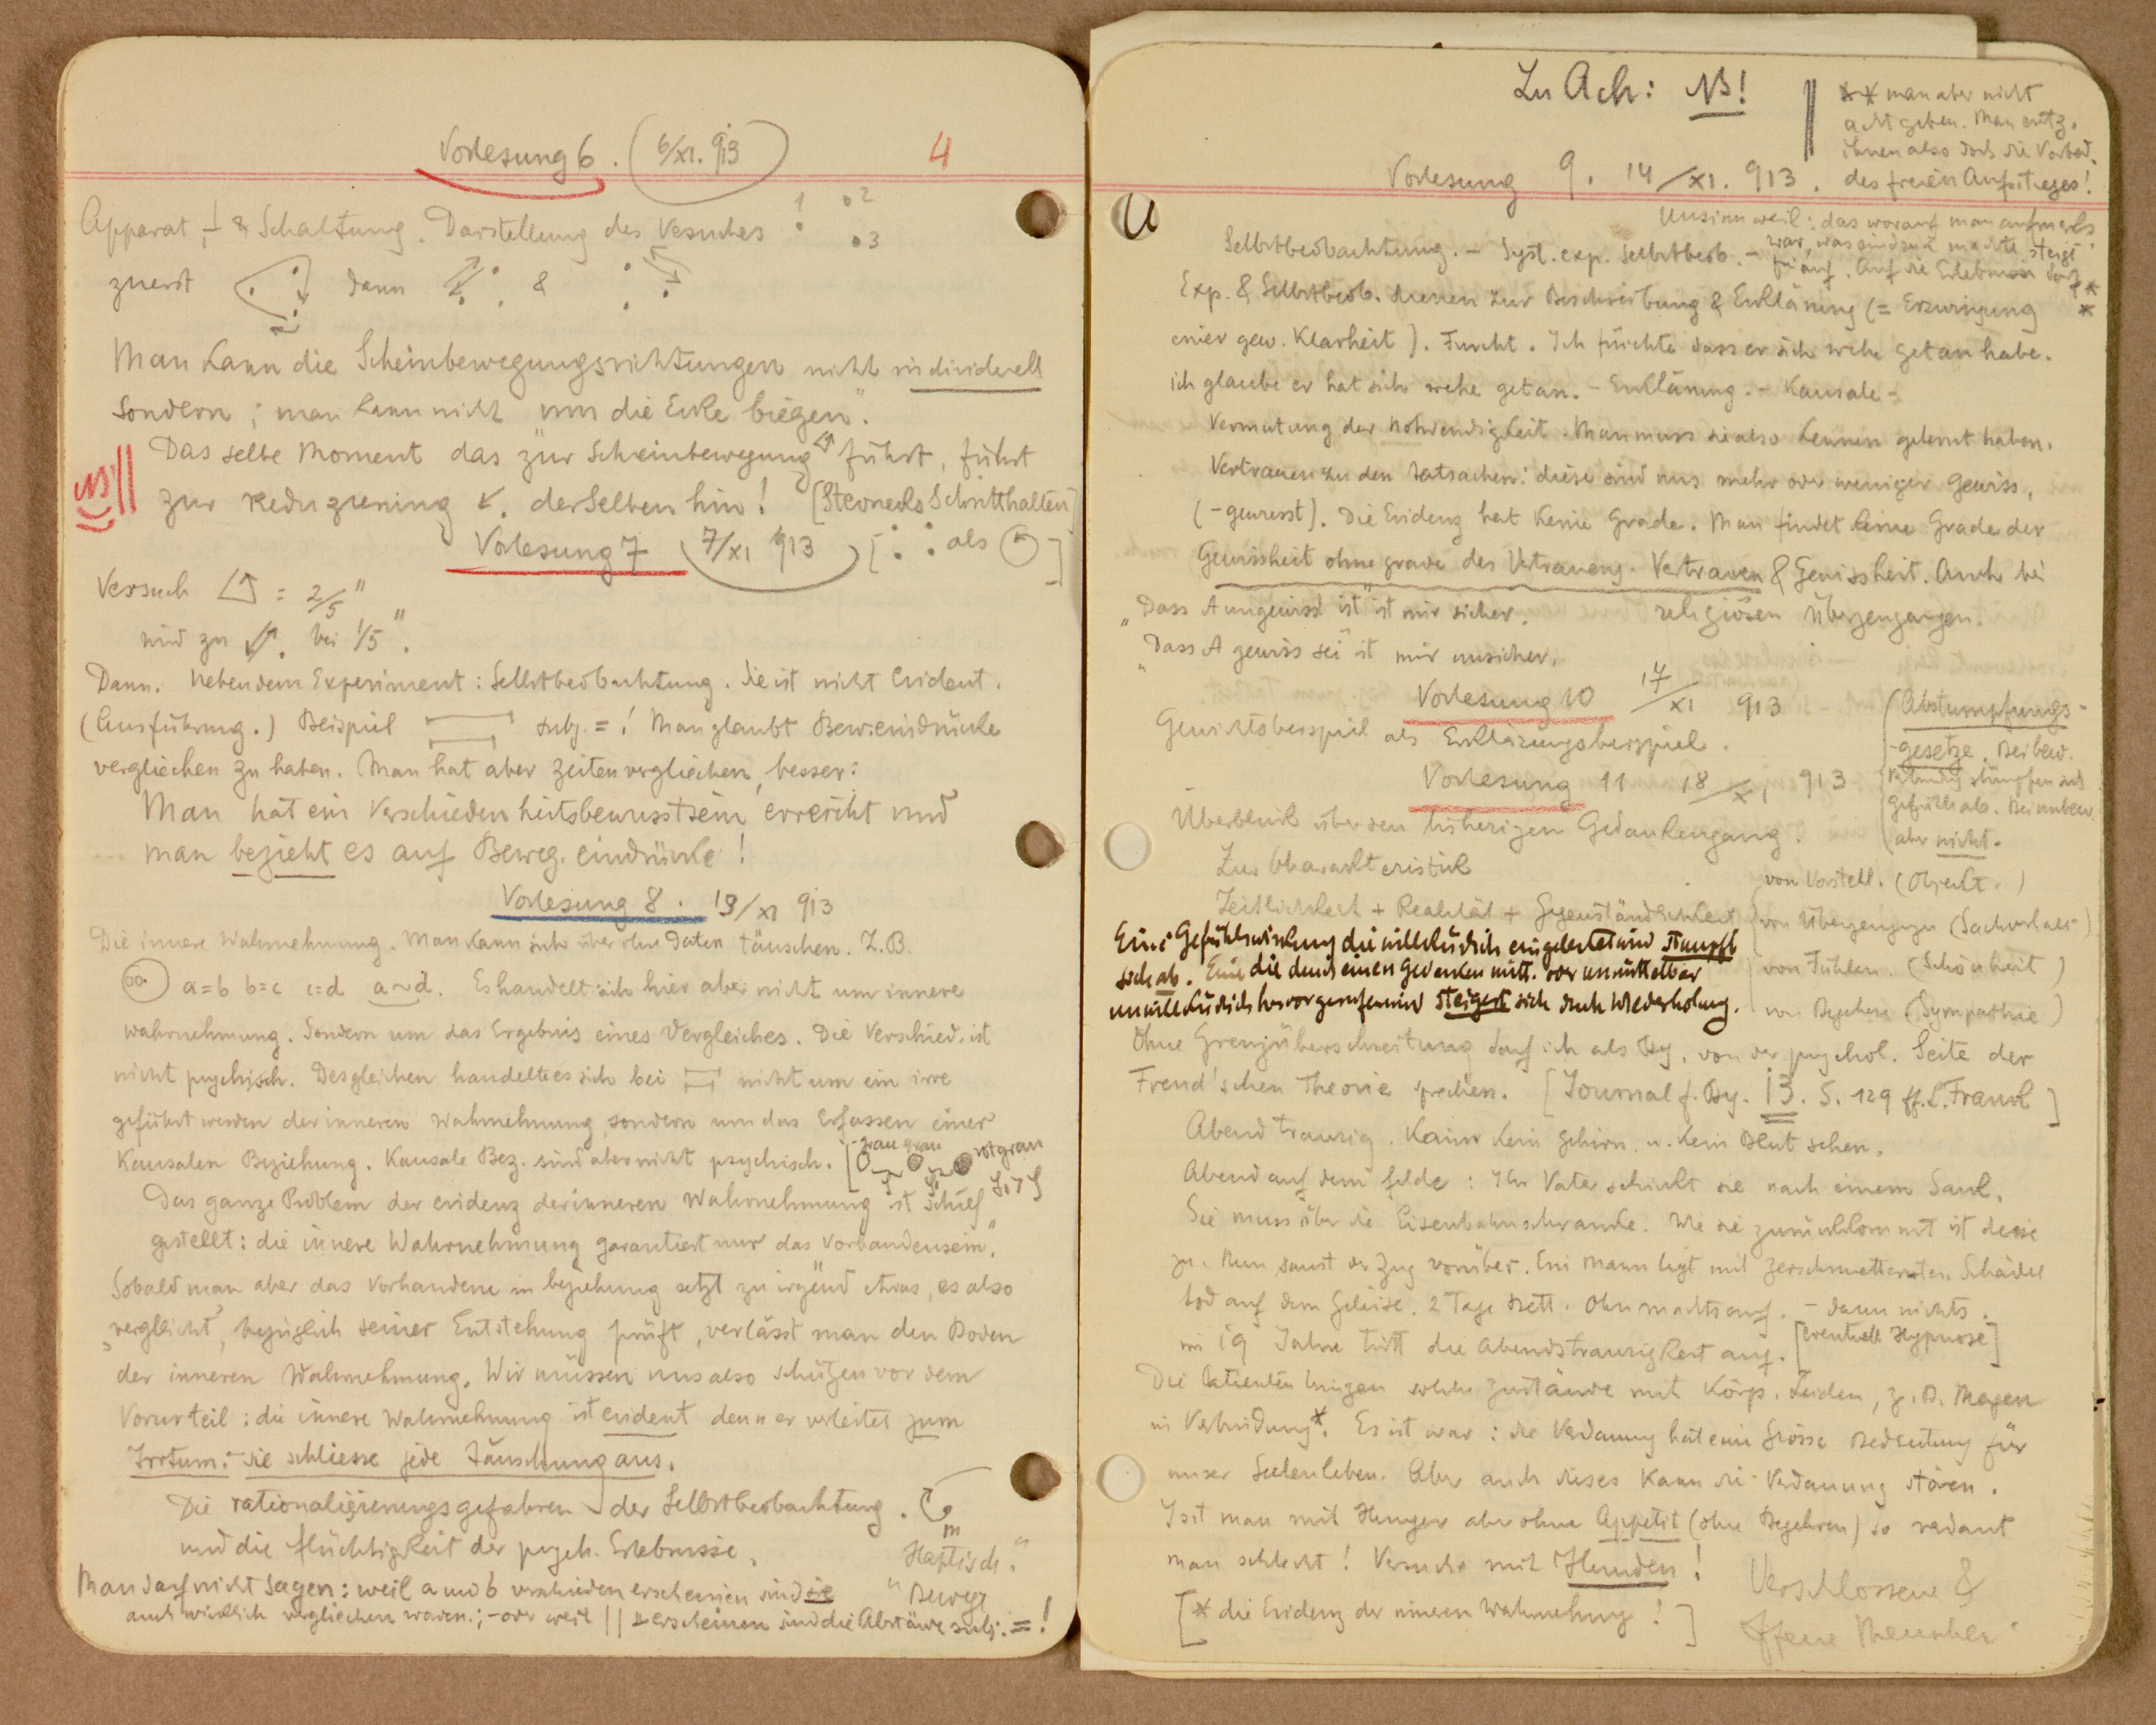 Vorlesung 6. (6/XI. 913)
4
Apparat, & Schaltung. Darstellung des Versuches 1 2 3
zuerst dann &
Man kann die Scheinbewegungsrichtungen nicht individuell
sondern; man kann nicht "um die Ecke biegen".
Das selbe Moment das zur Scheinbewegung führt, führt
NB!
zur Reduzierung derselben hin! [Sternecks Schritthalten]
Vorlesung 7 7/XI 913 [ als ]
Versuch = 2/5"
wird zu bei 1/5".
Dann. Neben dem Experiment: Selbstbeobachtung. Sie ist nicht Evident.
(Ausführung.) Beispiel subj. = ! Man glaubt Bew.eindrücke
verglichen zu haben. Man hat aber Zeiten verglichen, besser:
Man hat ein Verschiedenheitsbewusstsein erreicht und
man bezieht es auf Beweg.eindrücke!
Vorlesung 8. 13/XI 913
Die innere Wahrnehmung. Man kann sich über ihre Daten täuschen. Z.B.
a=b b=c c=d a~d. Es handelt sich hier aber nicht um innere
Wahrnehmung. Sondern um das Ergebnis eines Vergleiches. Die Verschied. ist
nicht psychisch. Desgleichen handelt es sich bei nicht um ein irre
geführt werden der inneren Wahrnehmung, sondern um das Erfassen einer
Kausalen Beziehung. Kausale Bez. sind aber nicht psychisch. [grau grau rotgrau
Das ganze Problem der Evidenz der inneren Wahrnehmung ist schief
gestellt: die innere Wahrnehmung garantiert nur das Vorhandensein.
Sobald man aber das Vorhandene in beziehung setzt zu irgend etwas, es also
"verglicht", bezüglich seiner Entstehung prüft, verlässt man den Boden
der inneren Wahrnehmung. Wir müssen uns also schützen vor dem
Vorurteil: die innere Wahrnehmung ist evident denn er verleitet zum
Irrtum: sie schliesse jede Täuschung aus.
Die rationalisierungsgefahren der Selbstbeobachtung.
und die Flüchtigkeit der psych. Erlebnisse.
Haptisch.
Man darf nicht sagen: weil a und b verschieden erscheinen sind sie
"Bewege
auch wirklich verglichen worden.; - oder weil || = erscheinen sind die Abstände subj. = !
Zu Ach: NB!
** man aber nicht
acht geben. Man entz.
ihnen also doch die Vorbed.
des freien Aufstieges!
Vorlesung 9. 14/XI. 913.
Unsinn weil: das worauf man aufmerks.
war, was eindruck machte steigt
frei auf. Auf die Erlebnisse darf **
Selbstbeobachtung. - Syst. exp. Selbstbeob. -
Exp. & Selbstbeob. dienen zur Beschreibung & Erklärung (= Erzwingung
einer gew. Klarheit). Furcht. Ich fürchte dass er sich wehe getan habe.
ich glaube er hat sich wehe getan. - Erklärung. - Kausale -
Vermutung der Notwendigkeit. Man muss sie also kennen gelernt haben.
Vertrauen zu den Tatsachen: diese sind uns mehr oder weniger Gewiss,
(-gewusst). Die Evidenz hat keine Grade. Man findet keine Grade der
Gewissheit ohne grade des Vertrauens. Vertrauen & Gewissheit. Auch bei
"Dass A ungewiss ist" ist mir sicher. religiösen Überzeugungen.
"Dass A gewiss sei" ist mir unsicher.
Vorlesung 10 17/XI 913
Gewichtsbeispiel als Erklärungsbeispiel.
(Abstumpfungs-
-gesetze. Bei bew.
stumpfen sich
Gefühle ab. Bei unbew.
aber nicht.
Vorlesung 11 18/XI 913
Überblick über den bisherigen Gedankengang.
Zur Charakteristik
Zeitlichkeit + Realität + Gegenständlichkeit
von Vorstell. (Objekt.)
von Überzeugungen (Sachverhalt)
von Fühlen. (Schönheit)
von Begehren (Sympathie)
Eine Gefühlswirkung die willkürlich eingeleitet wird stumpft
sich ab. Eine die durch einen Gedanken mitt. oder unmittelbar
unwillkürlich hervorgerufen wird steigert sich durch Wiederholung.
Ohne Grenzüberschreitung darf ich als Psy. von der psychol. Seite der
Freud'schen Theorie sprechen. [Journal f. Psy. 13. S. 129 ff. L. Frank]
Abend traurig. Kann kein Gehirn u. kein Blut sehen.
Abend auf dem Felde: Ihr Vater schickt sie nach einem Sack.
Sie muss über die Eisenbahnschranke. Wie sie zurückkommt ist diese
zu. Nun saust der Zug vorüber. Ein Mann liegt mit zerschmetterten Schädel
tod auf dem Geleise. 2 Tage Bett. Ohnmachtsanf. - dann nichts.
im 19 Jahre tritt die Abendstraurigkeit auf. [Eventuell Hypnose]
Die Patienten bringen solche Zustände mit Körp. Leiden, z.B. Magen
in Verbindung*. Es ist war: die Verdauung hat eine Grösse Bedeutung für
unser Seelenleben. Aber auch dieses kann die Verdauung stören.
Isst man mit Hunger aber ohne Appetit (ohne Begehren) so verdaut
man schlecht! Versuche mit Hunden!
Verschlossene &
[* die Evidenz der inneren Wahrnehmung!]
offene Menschen